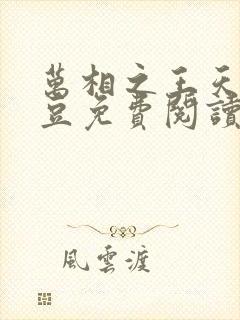 萬相之王天
豆免費閱讀
風雲渡